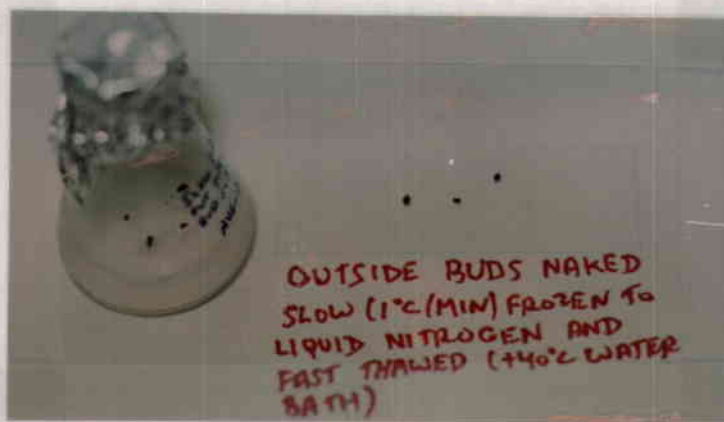 OUTSIDE BUDS NAKED
SLOW (1°C/MIN) FROZEN TO
LIQUID NITROGEN AND
FAST THAWED (+40°C WATER
BATH)